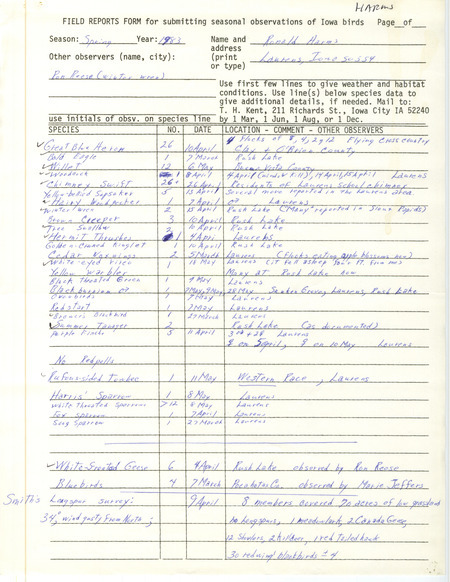 HARMS
FIELD REPORTS FORM for submitting seasonal observations of Iowa birds Page of
Season: Spring Year: 1983 Name and Ronald Harms
address
Other observers (name, city): (print Laurens, Iowa 50554
or type)
Ron Reese (winter wren)
Use first few lines to give weather and habitat
conditions. Use line(s) below species data to
give additional details, if needed. Mail to:
T. H. Kent, 211 Richards St., Iowa City IA 52240
use initials of obsv. on species line by 1 Mar, 1 Jun, 1 Aug, or 1 Dec.
SPECIES NO. DATE LOCATION - COMMENT - OTHER OBSERVERS
4 flocks of 8, 4, 2, 12 Flying cross country
Great Blue Heron 26 10 April Clay & O'Brien County
Bald Eagle 1 7 March Rush Lake
Willet 12 6 May Buena Vista County
Woodduck 1 8 April 4 April (window kill), 14 April, 15 April Laurens
Chimney Swift 26+ 26 April Residents of Laurens School chimney
Yellow-bellied Sapsucker 5 Several more reported in the Laurens area
Hairy Woodpecker 1 7 April Laurens
Winter Wren 2 15 April Rush Lake (Many reported in Sioux Rapids)
Brown Creeper 3 10 April Rush Lake
Tree Swallow 2 10 April Rush Lake
Hermit Thrushes 1 4 April Laurens
Golden-crowned Kinglet 1 10 April Rush Lake
Cedar Waxwings 2 5 March Laurens (flocks eating apple blossoms now)
White-eyed Vireo 1 16 May Laurens
Yellow Warbler Many at Rush Lake now
Black Throated Green 1 9 May Laurens
Blackburnian 1 9 May, 9 May, 28 May Laurens, Rush Lake
Ovenbirds 1 7 May Laurens
Redstart 1 7 May Laurens
Brewers Blackbird 1 27 March Laurens
Summer Tanager 2 Rush Lake (as documented)
Purple Finche 3 11 April 3 on 28 Laurens
8 on 5 April, 8 on 10 May Laurens
No Redpolls
Rufous-sided Towhee 1 11 May Western Race, Laurens
Harris' Sparrow 1 8 May Laurens
White throated Sparrow 8 May Laurens
Fox Sparrow 1 7 April Laurens
Song Sparrow 1 27 March Laurens
White-Fronted Geese 6 4 April Rush Lake observed by Ron Reese
Bluebirds 4 7 March Pocahontas Co. observed by Marie Jeffers
Smith's Longspur survey: 9 April 8 members covered 70 acres of low grassland
34°, wind gusts from North; no longspurs, 1 meadowlark, 2 Canada Geese,
12 Shovelers, 2 killdeer, 1 red tailed hawk
30 redwing blackbirds ± 4